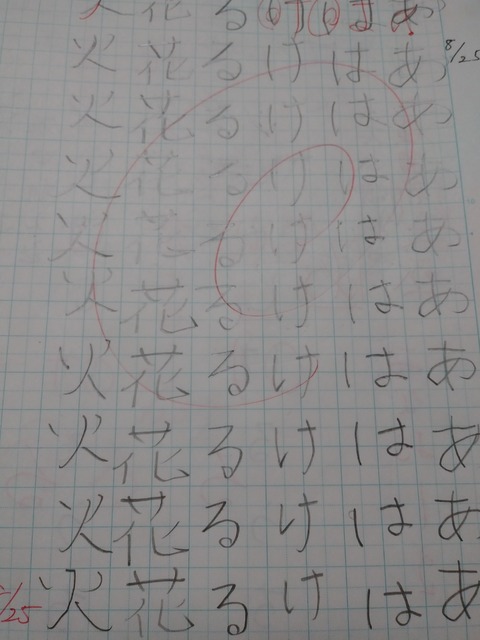 8/25
ああああああああああ
はははははははははは
けけけけけけけけけけ
るるるるるるるるるる
花花花花花花花花花花
火火火火火火火火火火
/25